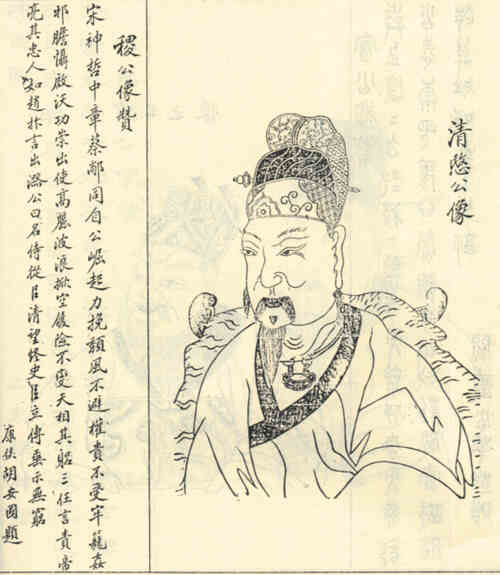 清愍公像
稷公像贊
宋神哲中章蔡鄙同自公崛起力挽頹風不避權貴不受牢籠姦
邪膽懾啟沃功崇出使高麗波浪掀空履險不變天相其躬三任言責帝
亮其忠人如趙抃言出潞公曰名侍從清望終史臣立傳垂示無窮
康侯胡安國題